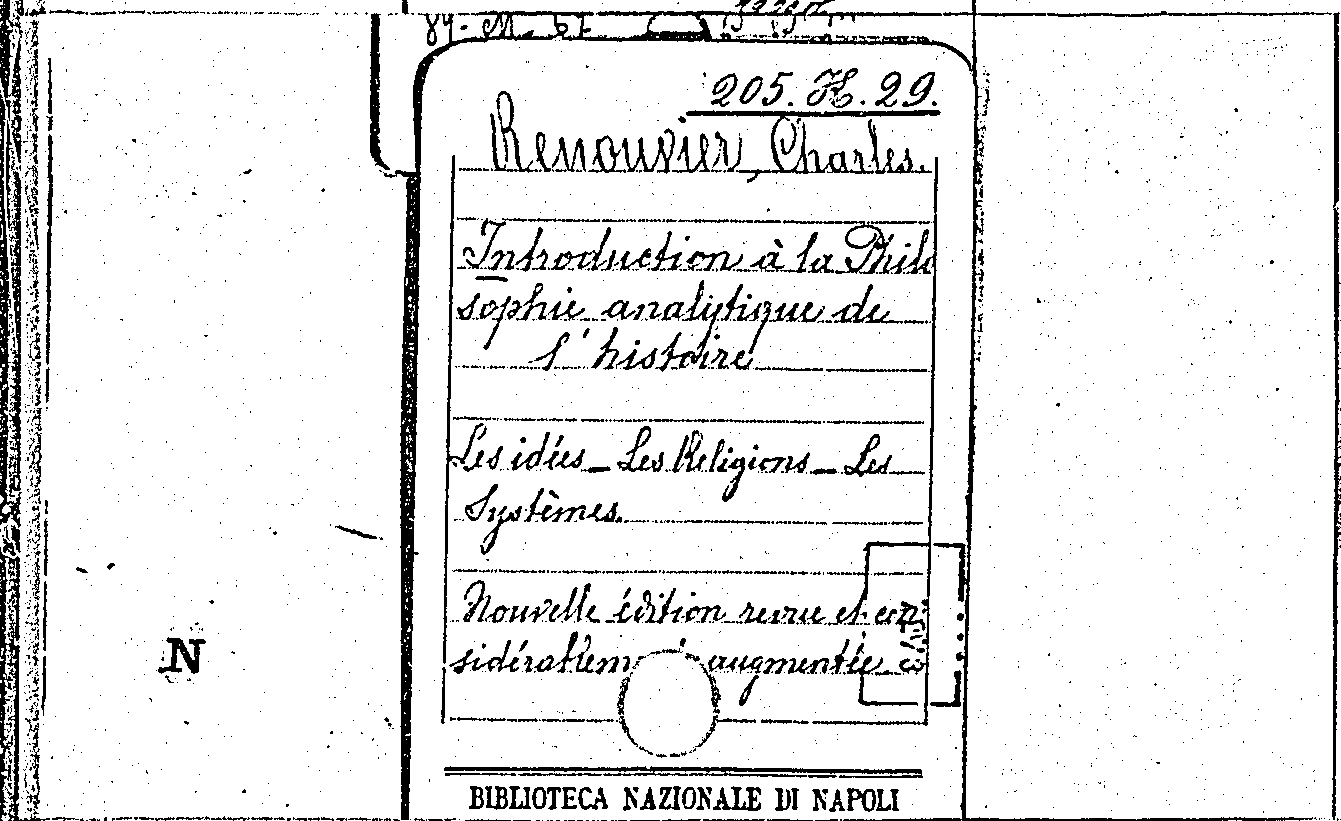 84. M. 67
205. H. 29.
Renouvier, Charles.
Introduction à la Philo
sophie analytique de
l'histoire
Les idées _ Les Religions _ Les
Systèmes.
Nouvelle édition revue et con
sidérablem augmentée
N
BIBLIOTECA NAZIONALE DI NAPOLI